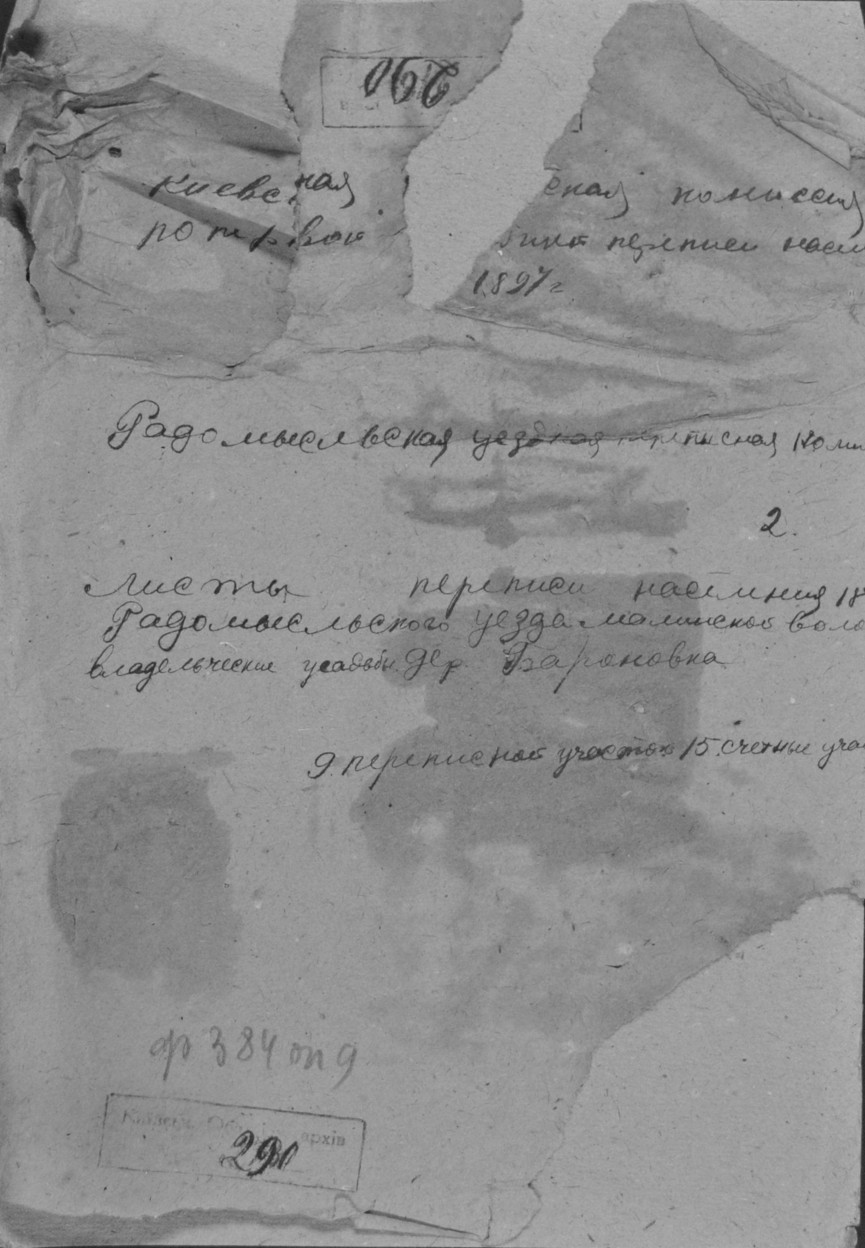 290
Киевская ская комиссия
по первой переписи насел
1897 г.
Радомысльская уездная переписная Коми
2.
Листы переписи населения 18
Радомысльского уезда малинской воло
владельческие усадьбы дер. Барановка
9. переписной участок 15. счетные учас
ф 384 оп 9
архів
290